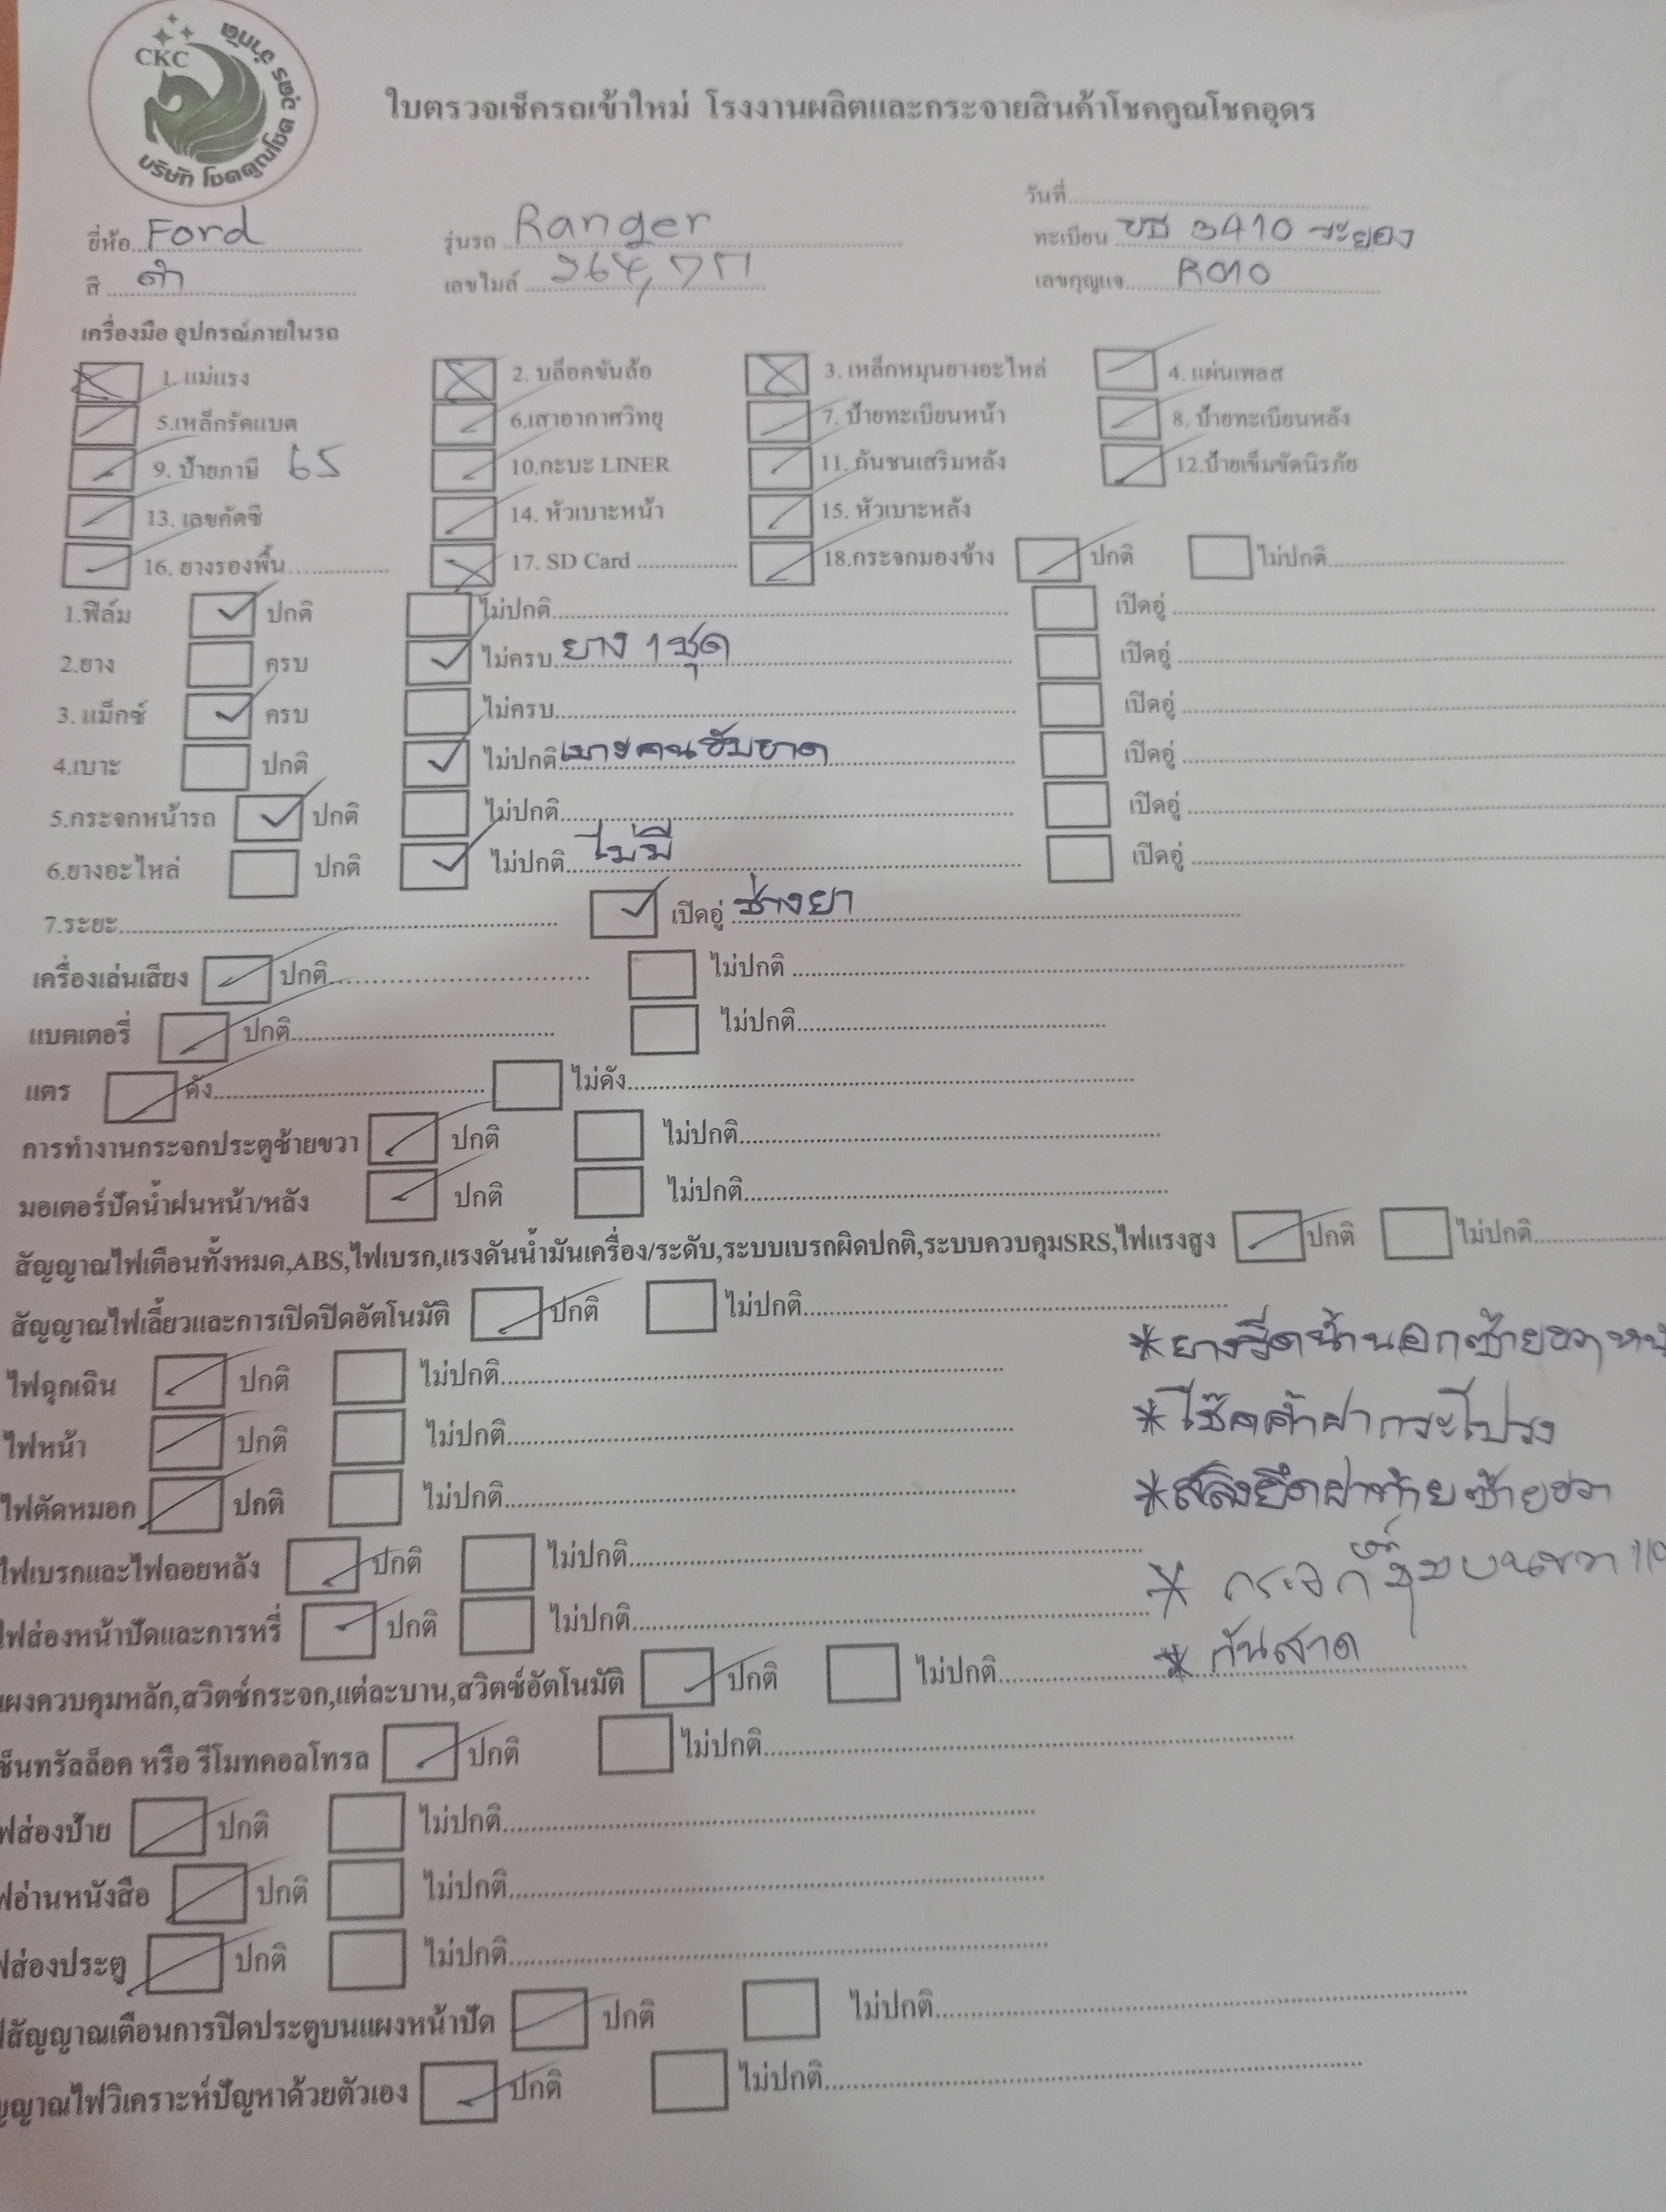 CKC
บริษัท โชคคูณโชค อุดร จำกัด
ใบตรวจเช็ครถเข้าใหม่ โรงงานผลิตและกระจายสินค้าโชคคูณโชคอุดร
วันที่
ยี่ห้อ Ford รุ่นรถ Ranger ทะเบียน 3410 ระยอง
สี ดำ เลขไมล์ เลขกุญแจ R010
เครื่องมือ อุปกรณ์ภายในรถ
1. แม่แรง 2. บล็อคขันล้อ 3. เหล็กหมุนยางอะไหล่ 4. แผ่นเพลส
5.เหล็กรัดแบต 6.เสาอากาศวิทยุ 7. ป้ายทะเบียนหน้า 8. ป้ายทะเบียนหลัง
9. ป้ายภาษี 65 10.กะบะ LINER 11. กันชนเสริมหลัง 12.ป้ายเข็มขัดนิรภัย
13. เลขคัตซี 14. หัวเบาะหน้า 15. หัวเบาะหลัง
16. ยางรองพื้น 17. SD Card 18.กระจกมองข้าง ปกติ ไม่ปกติ
1.ฟิล์ม ปกติ ไม่ปกติ เปิดอู่
2.ยาง ครบ ไม่ครบ ยาง 1 ชุด เปิดอู่
3. แม็กซ์ ครบ ไม่ครบ เปิดอู่
4.เบาะ ปกติ ไม่ปกติ เบาะคนขับขาด เปิดอู่
5.กระจกหน้ารถ ปกติ ไม่ปกติ เปิดอู่
6.ยางอะไหล่ ปกติ ไม่ปกติ ไม่มี เปิดอู่
7.ระยะ เปิดอู่ ช่างยา
เครื่องเล่นเสียง ปกติ ไม่ปกติ
แบตเตอรี่ ปกติ ไม่ปกติ
แตร ดัง ไม่ดัง
การทำงานกระจกประตูซ้ายขวา ปกติ ไม่ปกติ
มอเตอร์ปัดน้ำฝนหน้า/หลัง ปกติ ไม่ปกติ
สัญญาณไฟเตือนทั้งหมด,ABS,ไฟเบรก,แรงดันน้ำมันเครื่อง/ระดับ,ระบบเบรกผิดปกติ,ระบบควบคุมSRS,ไฟแรงสูง ปกติ ไม่ปกติ
สัญญาณไฟเลี้ยวและการเปิดปิดอัตโนมัติ ปกติ ไม่ปกติ
*ยางรีดน้ำนอกซ้ายขวา
ไฟฉุกเฉิน ปกติ ไม่ปกติ
*โช๊คค้ำฝากระโปรง
ไฟหน้า ปกติ ไม่ปกติ
*สลิงยึดฝาท้ายซ้ายขวา
ไฟตัดหมอก ปกติ ไม่ปกติ
ไฟเบรกและไฟถอยหลัง ปกติ ไม่ปกติ
* กระจก
ไฟส่องหน้าปัดและการหรี่ ปกติ ไม่ปกติ
* กันสาด
แผงควบคุมหลัก,สวิตซ์กระจก,แต่ละบาน,สวิตซ์อัตโนมัติ ปกติ ไม่ปกติ
ซ็นทรัลล็อค หรือ รีโมทคอลโทรล ปกติ ไม่ปกติ
ฟส่องป้าย ปกติ ไม่ปกติ
ฟอ่านหนังสือ ปกติ ไม่ปกติ
ฟส่องประตู ปกติ ไม่ปกติ
ฟสัญญาณเตือนการปิดประตูบนแผงหน้าปัด ปกติ ไม่ปกติ
ญญาณไฟวิเคราะห์ปัญหาด้วยตัวเอง ปกติ ไม่ปกติ